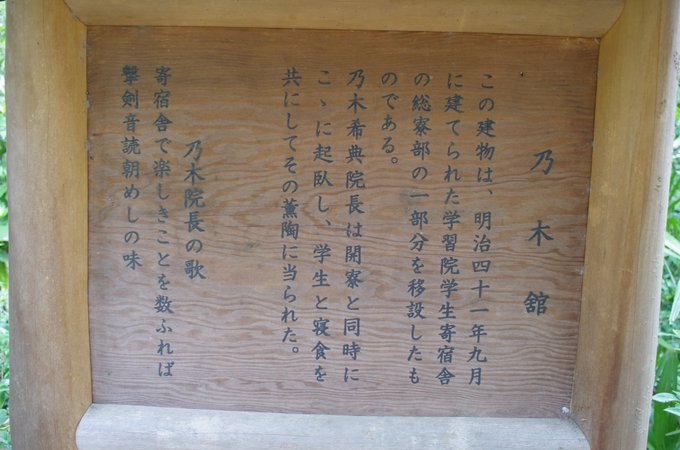 乃木舘
この建物は、明治四十一年九月
に建てられた学習院学生寄宿舎
の総寮部の一部分を移設したも
のである。
乃木希典院長は開寮と同時に
こゝに起臥し、学生と寝食を
共にしてその薫陶に当られた。
乃木院長の歌
寄宿舎で楽しきことを数ふれば
撃剣音読朝めしの味